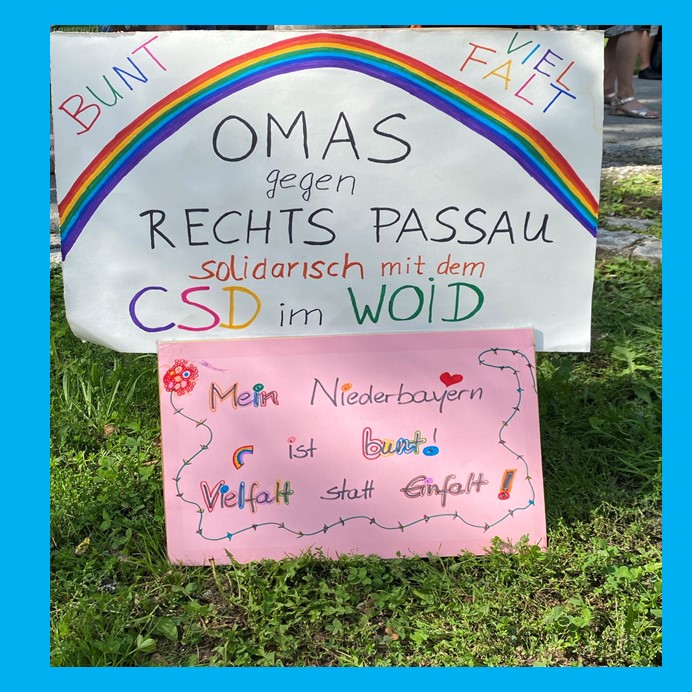 BUNT
VIEL
FALT
OMAS
gegen
RECHTS PASSAU
solidarisch mit dem
CSD im WOID
Mein Niederbayern
ist bunt!
Vielfalt statt Einfalt!